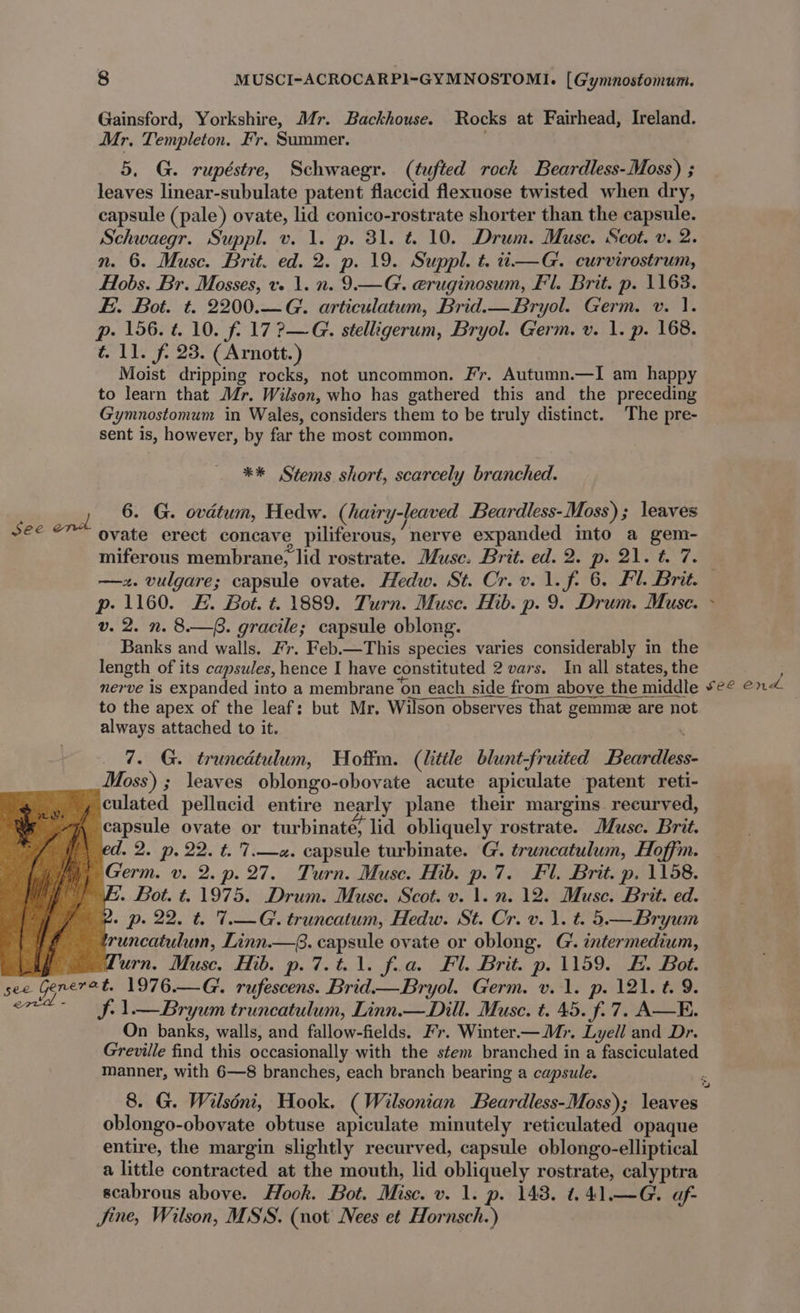 8 MUSCI-ACROCARPI-GYMNOSTOMI. [Gymnostomum.
Gainsford, Yorkshire, Mr. Backhouse. Rocks at Fairhead, Ireland.
Mr. Templeton. Fr. Summer.
5. G. rupéstre, Schwaegr. (tufted rock Beardless-Moss) ;
leaves linear-subulate patent flaccid flexuose twisted when dry,
capsule (pale) ovate, lid conico-rostrate shorter than the capsule.
Schwaegr. Suppl. v. 1. p. 31. t. 10. Drum. Musc. Scot. v. 2.
n. 6. Musc. Brit. ed. 2. p. 19. Suppl. t. ii.—G. curvirostrum,
Hobs. Br. Mosses, v. 1. n. 9.—G. æruginosum, Fl. Brit. p. 1163.
E. Bot. t. 2200.—G. articulatum, Brid.—Bryol. Germ. v. 1.
p. 156. t. 10. f. 17 ?—G. stelligerum, Bryol. Germ. v. 1. p. 168.
t. 11. f. 23. (Arnott.)
Moist dripping rocks, not uncommon. Fr. Autumn.—I am happy
to learn that Mr. Wilson, who has gathered this and the preceding
Gymnostomum in Wales, considers them to be truly distinct. The pre-
sent is, however, by far the most common.
** Stems short, scarcely branched.
6. G. ovátum, Hedw. (hairy-leaved Beardless-Moss) ; leaves
See end ovate erect concave piliferous, nerve expanded into a gem-
miferous membrane, lid rostrate. Musc. Brit. ed. 2. p. 21. t. 7.
—α. vulgare; capsule ovate. Hedw. St. Cr. v. 1. f. 6. Fl. Brit.
p. 1160. E. Bot. t. 1889. Turn. Musc. Hib. p. 9. Drum. Musc.
v. 2. n. 8.—β. gracile; capsule oblong.
Banks and walls. Fr. Feb.—This species varies considerably in the
length of its capsules, hence I have constituted 2 vars. In all states, the
nerve is expanded into a membrane on each side from above the middle see end
to the apex of the leaf: but Mr. Wilson observes that gemmæ are not
always attached to it.
7. G. truncátulum, Hoffm. (little blunt-fruited Beardless-
Moss) ; leaves oblongo-obovate acute apiculate patent reti-
culated pellucid entire nearly plane their margins recurved,
capsule ovate or turbinate, lid obliquely rostrate. Musc. Brit.
ed. 2. p. 22. t. 7.—α. capsule turbinate. G. truncatulum, Hoffm.
Germ. v. 2. p. 27. Turn. Musc. Hib. p. 7. Fl. Brit. p. 1158.
E. Bot. t. 1975. Drum. Musc. Scot. v. 1. n. 12. Musc. Brit. ed.
2. p. 22. t. 7.—G. truncatum, Hedw. St. Cr. v. 1. t. 5.—Bryum
truncatulum, Linn.—β. capsule ovate or oblong. G. intermedium,
Turn. Musc. Hib. p. 7. t. 1. f. a. Fl. Brit. p. 1159. E. Bot.
see Gener at t. 1976.—G. rufescens. Brid.—Bryol. Germ. v. 1. p. 121. t. 9.
end - f. 1.—Bryum truncatulum, Linn.—Dill. Musc. t. 45. f. 7. A—E.
On banks, walls, and fallow-fields. Fr. Winter.—Mr. Lyell and Dr.
Greville find this occasionally with the stem branched in a fasciculated
manner, with 6—8 branches, each branch bearing a capsule.
8. G. Wilsóni, Hook. (Wilsonian Beardless-Moss); leaves
oblongo-obovate obtuse apiculate minutely reticulated opaque
entire, the margin slightly recurved, capsule oblongo-elliptical
a little contracted at the mouth, lid obliquely rostrate, calyptra
scabrous above. Hook. Bot. Misc. v. 1. p. 143. t. 41.—G. af-
fine, Wilson, MSS. (not Nees et Hornsch.)